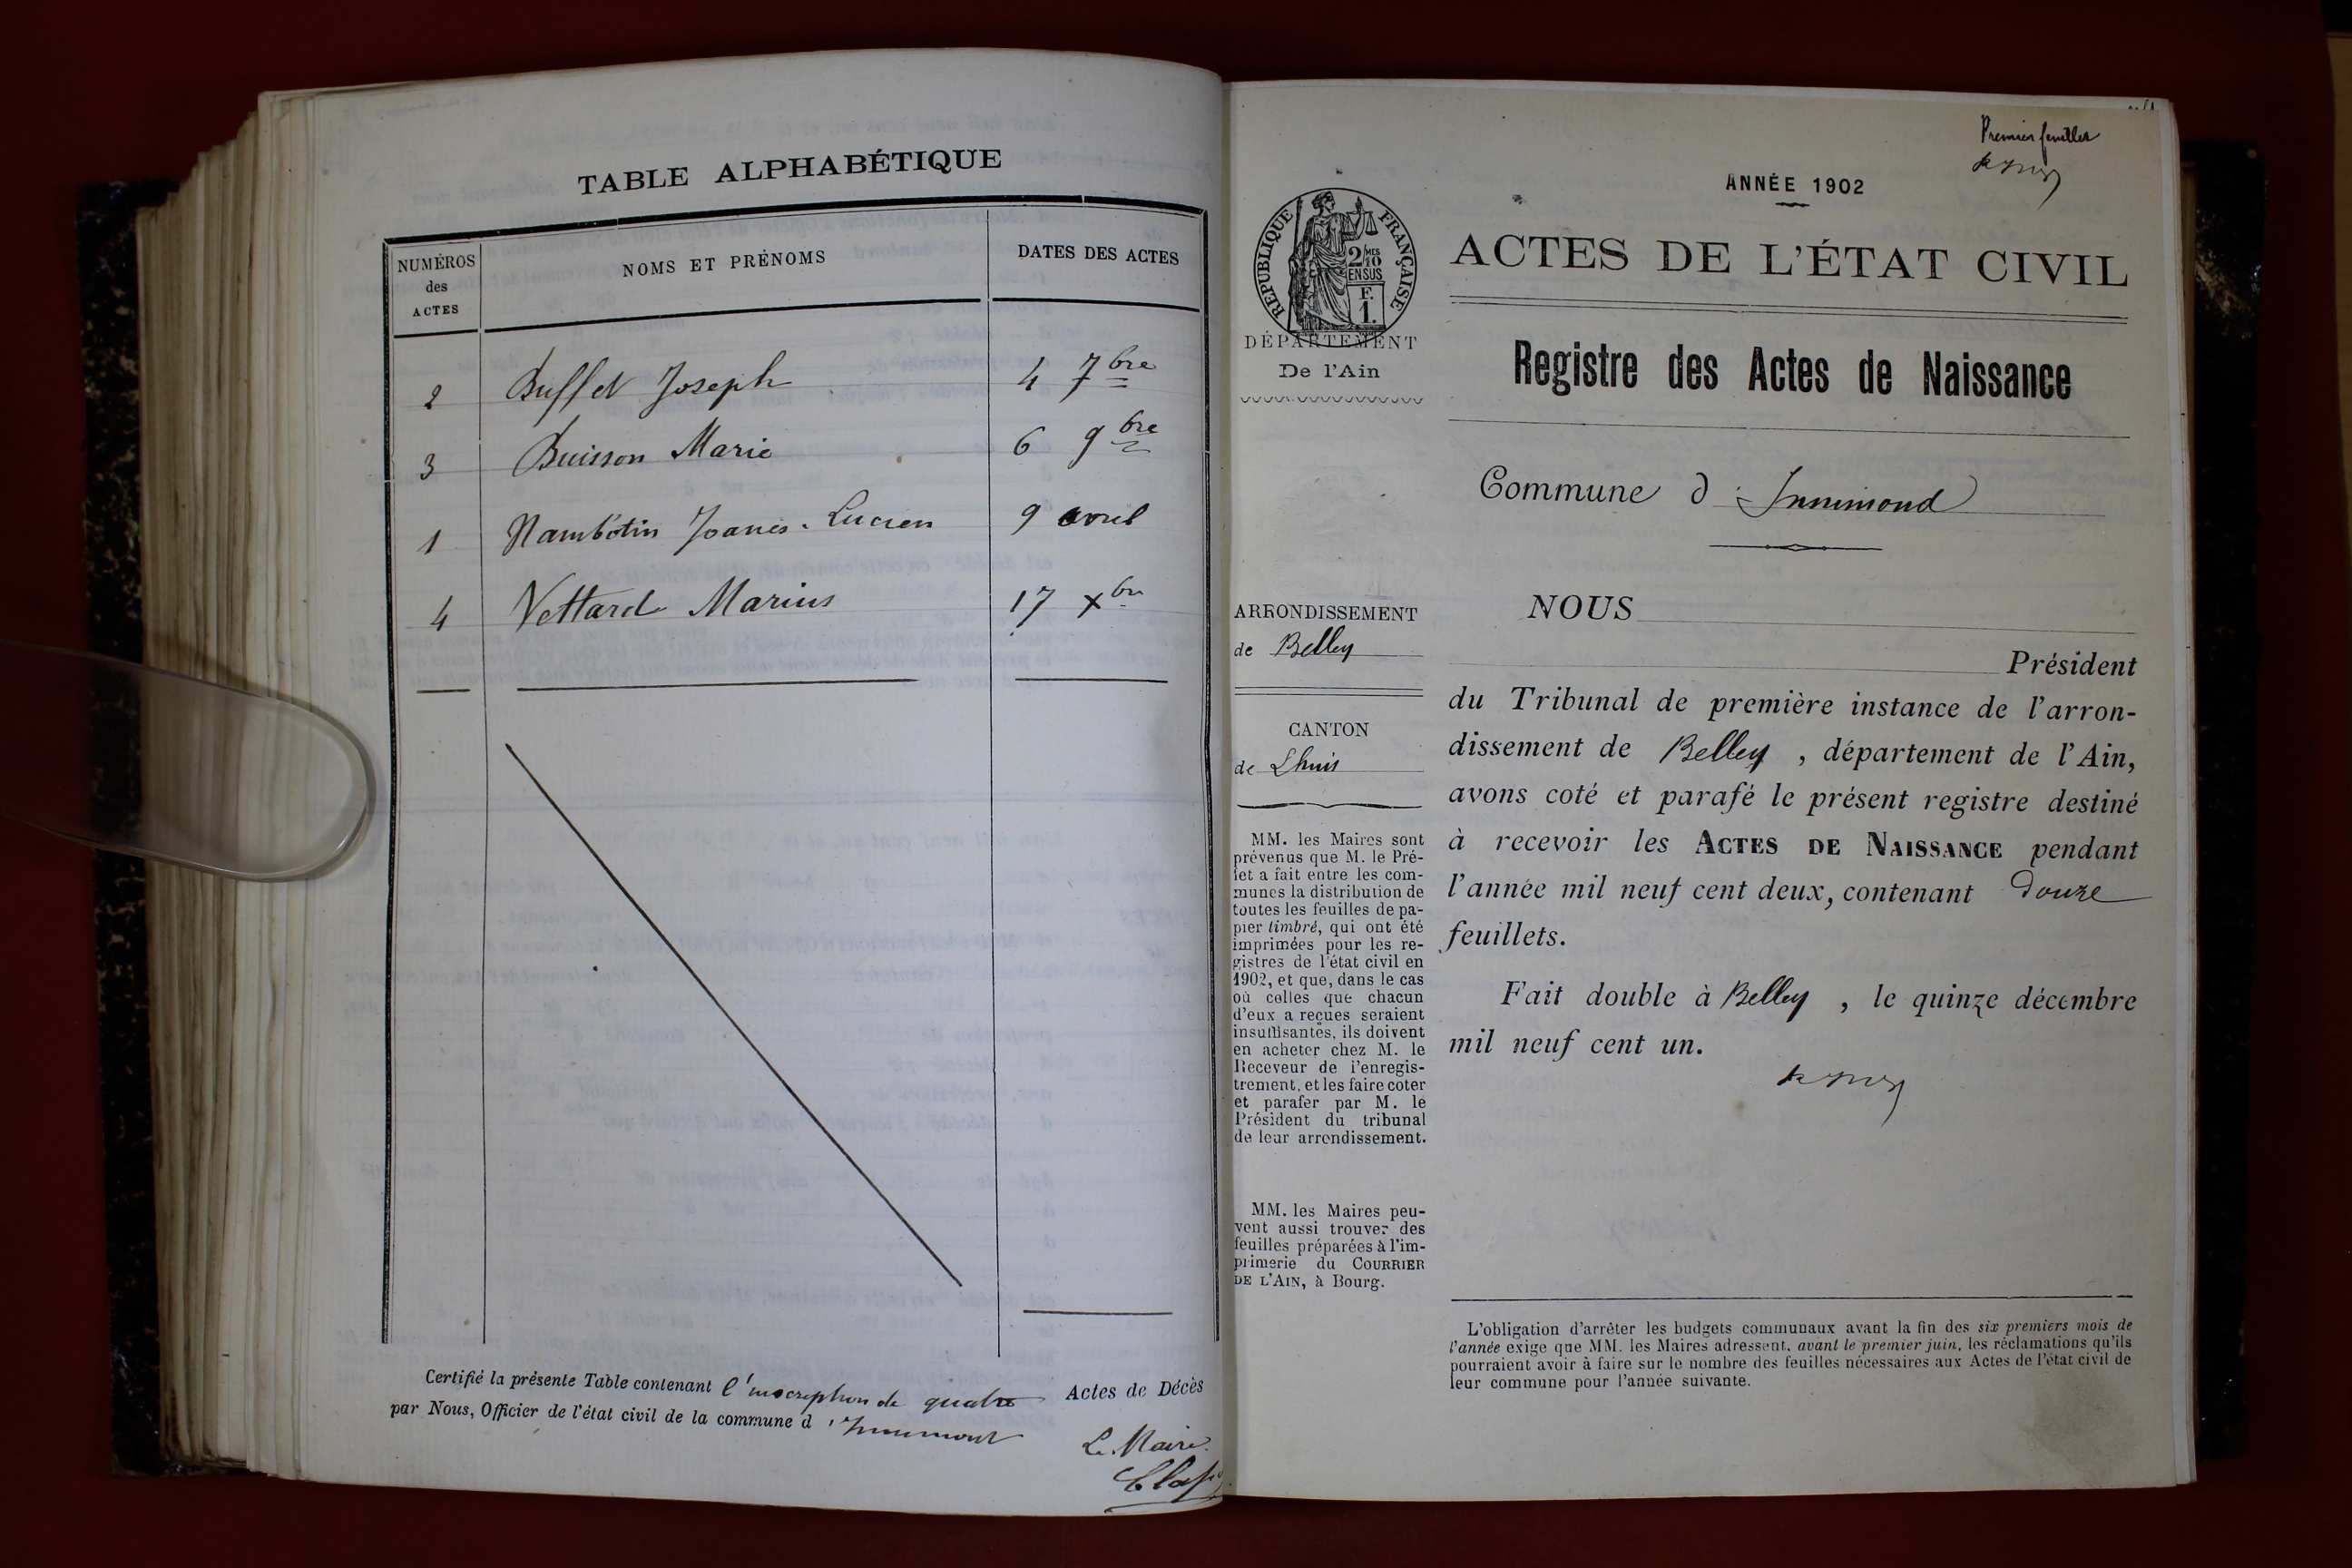 TABLE ALPHABÉTIQUE
NUMÉROS
des
ACTES
NOMS ET PRÉNOMS
DATES DES ACTES
2 Buffet Joseph 4 7bre
3 Buisson Marie 6 9bre
1 Nambotin Joanès Lucien 9 avril
4 Vettard Marius 17 Xbre
Certifié la présente Table contenant l'inscription de quatre Actes de Décès
par Nous, Officier de l'état civil de la commune d'Innimont
Le Maire
Premier feuillet
ANNÉE 1902
RÉPUBLIQUE FRANÇAISE
2/10MES
EN SUS
F.
1.
DÉPARTEMENT
De l'Ain
ACTES DE L'ÉTAT CIVIL
Registre des Actes de Naissance
Commune d'Innimond
ARRONDISSEMENT
de Belley
CANTON
de Lhuis
MM. les Maires sont
prévenus que M. le Pré-
fet a fait entre les com-
munes la distribution de
toutes les feuilles de pa-
pier timbré, qui ont été
imprimées pour les re-
gistres de l'état civil en
1902, et que, dans le cas
où celles que chacun
d'eux a reçues seraient
insuffisantes, ils doivent
en acheter chez M. le
Receveur de l'enregis-
trement, et les faire coter
et parafer par M. le
Président du tribunal
de leur arrondissement.
MM. les Maires peu-
vent aussi trouver des
feuilles préparées à l'im-
primerie du COURRIER
DE L'AIN, à Bourg.
NOUS
Président
du Tribunal de première instance de l'arron-
dissement de Belley , département de l'Ain,
avons coté et parafé le présent registre destiné
à recevoir les ACTES DE NAISSANCE pendant
l'année mil neuf cent deux, contenant Douze
feuillets.
Fait double à Belley , le quinze décembre
mil neuf cent un.
L'obligation d'arrêter les budgets communaux avant la fin des six premiers mois de
l'année exige que MM. les Maires adressent, avant le premier juin, les réclamations qu'ils
pourraient avoir à faire sur le nombre des feuilles nécessaires aux Actes de l'état civil de
leur commune pour l'année suivante.